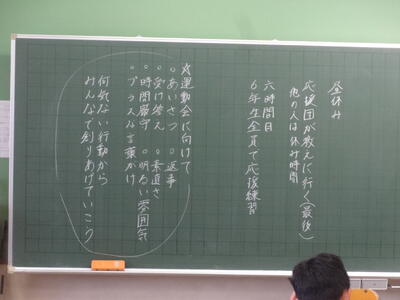 昼休み
応援団が教えに行く(最後)
他の人は休み時間
六時間目
6年生全員で応援練習
運動会に向けて
○あいさつ ○返事
○受け答え ○素直さ
○時間厳守 ○明るい雰囲気
○プラスな言葉かけ
何気ない行動から
みんなで創りあげていこう